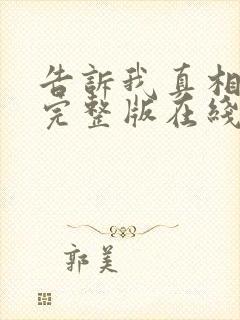 告訴我真相
完整版在綫
郭美